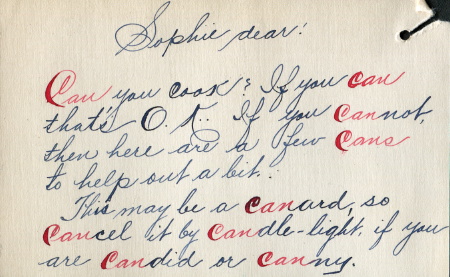 Sophie dear!
Can you cook? If you can
that's O.K. If you cannot,
then here are a few Cans
to help out a bit.
This may be a canard, so
cancel it by candle-light, if you
are candid or canny.